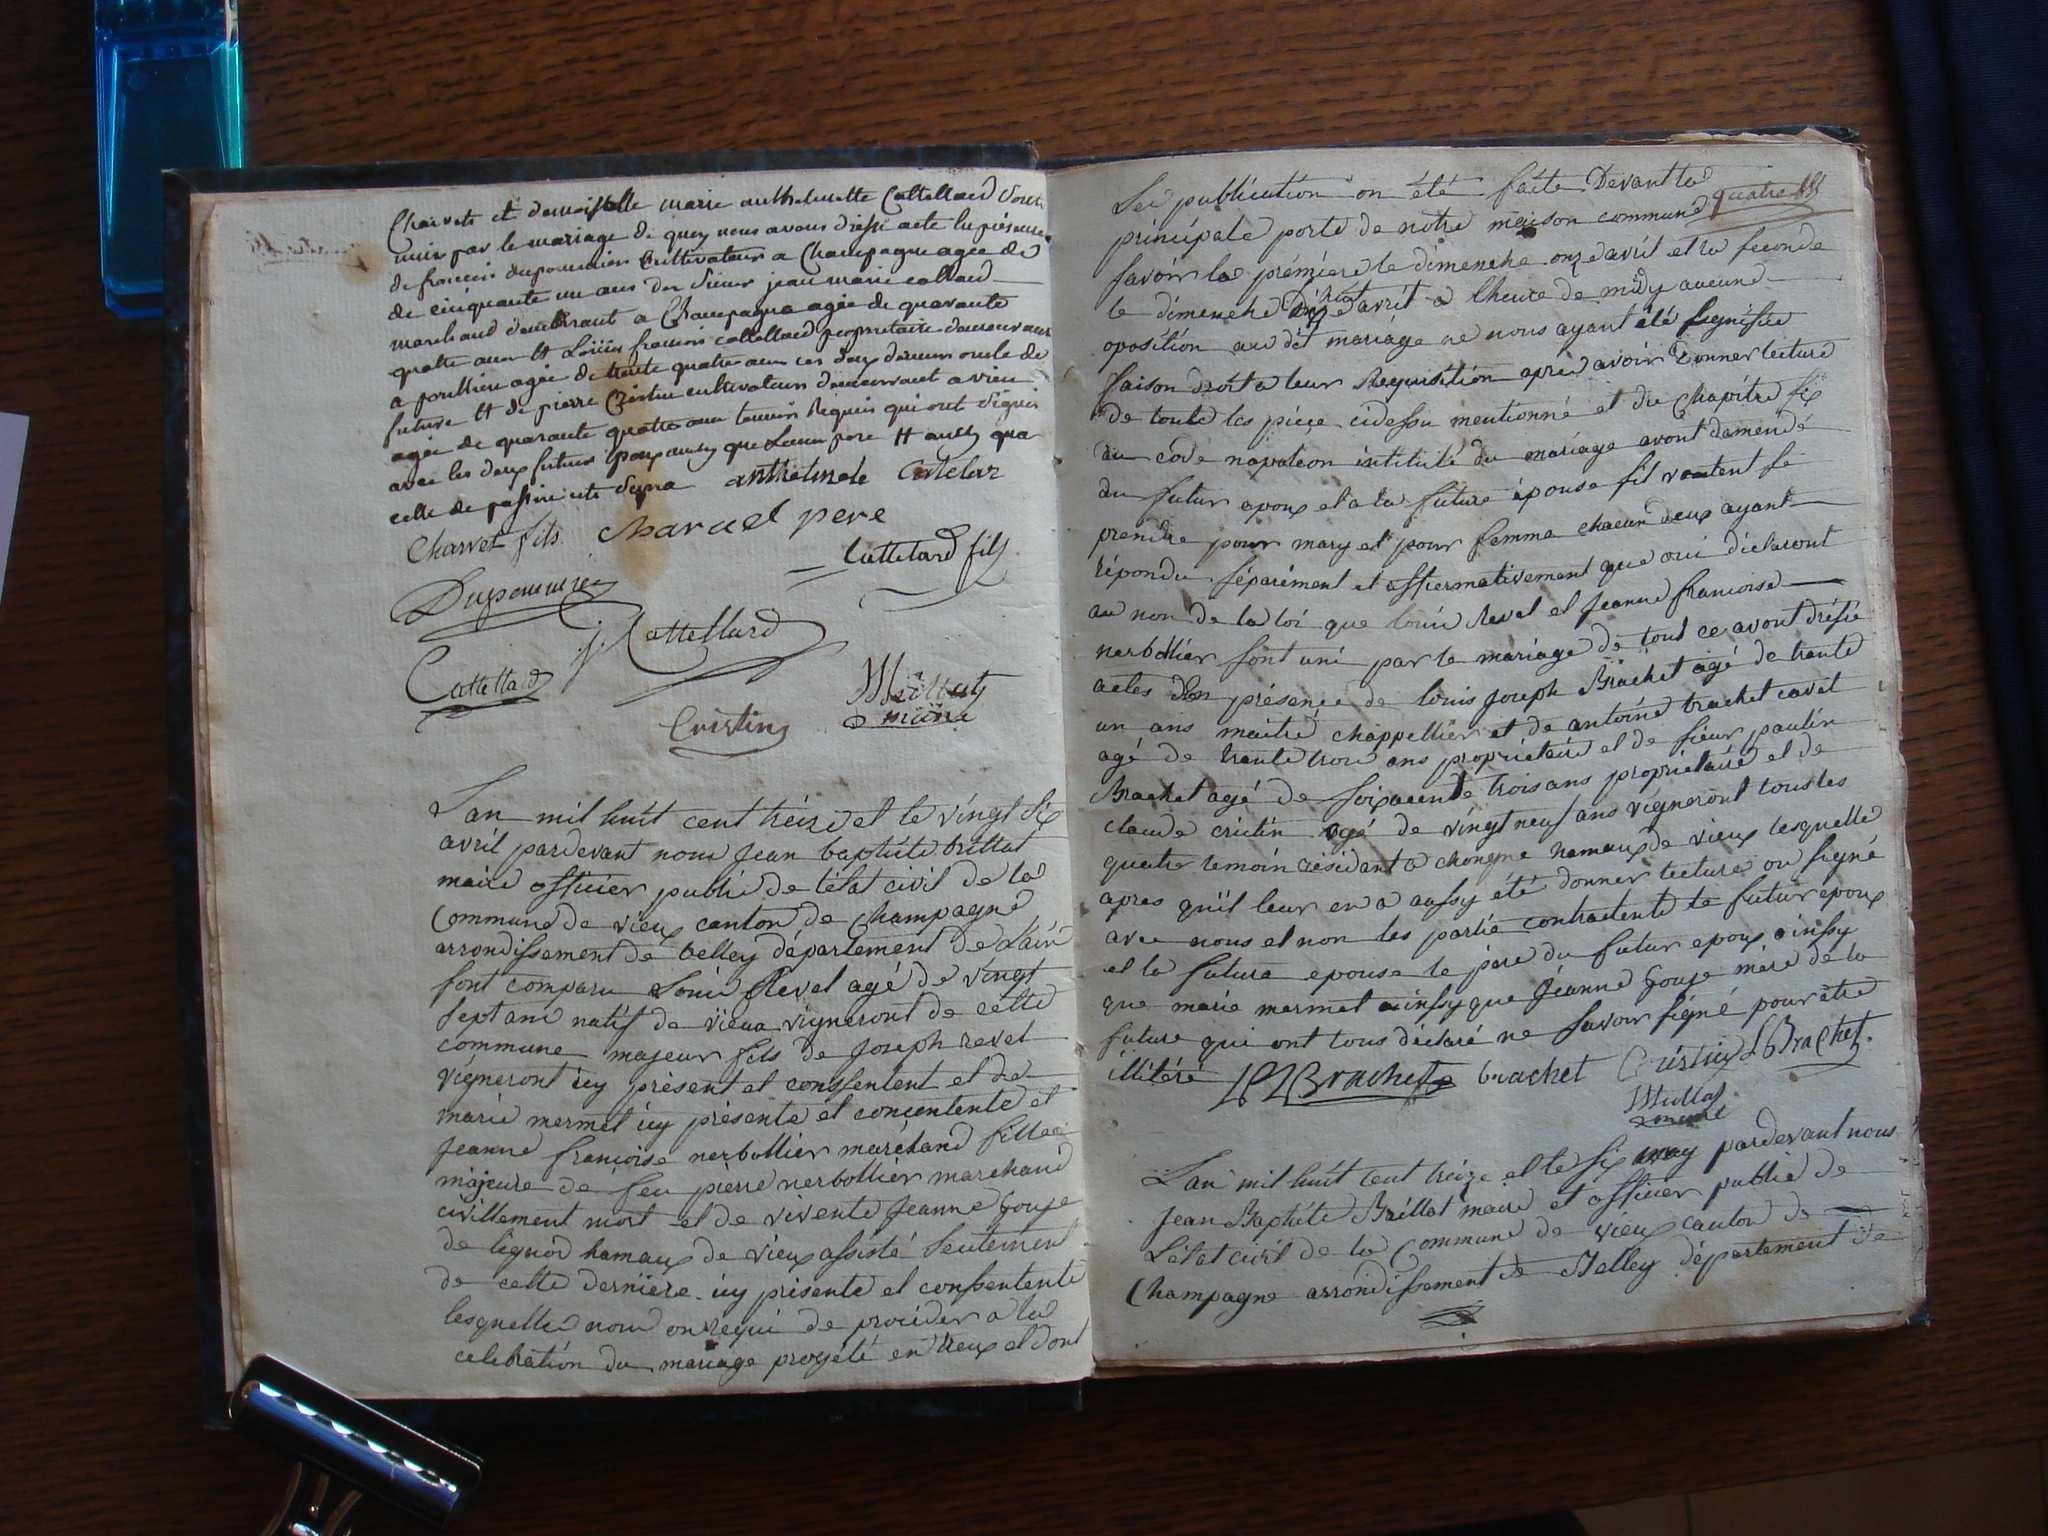 Charvet et demoiselle marie anthelmette Cattellard sont
unis par le mariage de quoy nous avons dressé acte En présence
de francois dupommier Cultivateur a Champagne agée de
de cinquante un ans du sieur jean marie
marchand demeurant a Champagne agée de quarante
quatre ans Et Loüis francois cattellard proprietaire demeurant
a poullieu agée de trente quatre ans ces deux derniers oncle de
future Et de pierre Cristin cultivateur demeurant a vieu
agée de quarante quatre ans temoin Requis qui ont signés
avec les deux futurs Epoux aussy que Leur pere Et aussy qua
celle de
anthelmete Catelar
Charvet fils Charvet pere
Cattelard fils
Dupommier
J Cattellard
Cattellard
Cristin
maire
Lan mil huit cent treize et le vingt six
avril pardevant nous Jean baptiste brillat
maire officier public de létat civil de la
Commune de vieux canton de champagne
arrondissement de belley département de Lain
sont comparu Louis Revel agé de vingt
sept ans natif de vieux vigneront de cette
commune majeur fils de Joseph revel
vigneront icy présent et consentent et de
marie mermet icy présente et concentente et
Jeanne francoise nerbollier maréchand fillee
majeure de feu pierre nerbollier marchand
civillement mort et de vivente Jeanne Gouje
de lignod hamaux de vieux assisté seulement
de cette derniere icy présente et consentente
lesquelles nous on requi de procéder a la
celebration du mariage projété en treux et dont
Les publication on été faite Devant la
principale porte de notre maison commune
quatre
savoir la première le dimenche onze avril et la seconde
le dimenche Dix huit avril a lheure de midy aucune
oposition au dit mariage ne nous ayant été signifiée
faison droit a leur Requisition apres avoir Donner lecture
de toute les pièce cidessu mentionné et du Chapitre six
du code napoleon intitulé du mariage avont demendé
au futur epoux et a la future épouse sil veutent se
prendre pour mary et pour femme chacun deux ayant
répondu séparément et affirmativement que oui déclaront
au non de la loi que louis Revel et Jeanne francoise
nerbollier sont uni par le mariage de tout ce avont dréssé
actes En présence de louis Joseph Brachet agé de trente
un ans maitre chappellier et de antoine brachet cavet
agé de trente trois ans propriétaire et de sieur paulin
Brachet agé de soixacente trois ans propriétaire et de
claude cristin agé de vingt neuf ans vigneront tous les
quatre temoin résidant a chongne hamaux de vieux lesquelle
apres qu'il leur en a aussy été donner lecture on signé
avec nous et non les partie contractente le futur époux
et la future epouse le père du futur epoux ainssy
que marie mermet ainssy que Jéanne Gouje mère de la
future qui ont tous déclaré ne savoir signé pour être
illitéré LJ Brachet brachet Cristin P Brachet
Lan mil huit cent treize et le six may pardevant nous
Jean Baptiste Brillat maire et officier public de
Létat civil de la Commune de vieux canton de
Champagne arrondissement de Belley département de